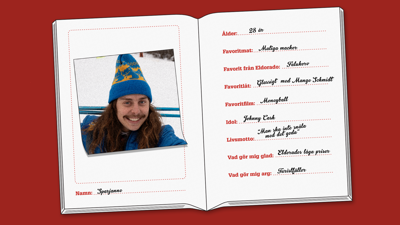 Namn: Sparjanne
Ålder: 28 år
Favoritmat: Matiga mackor
Favorit från Eldorado: Falukorv
Favoritlåt: Glassigt med Mange Schmidt
Favoritfilm: Moneyball
Idol: Johnny Cash
Livsmotto: "Man ska inte snåla
med det goda"
Vad gör mig glad: Eldorados låga priser
Vad gör mig arg: Turistfällor